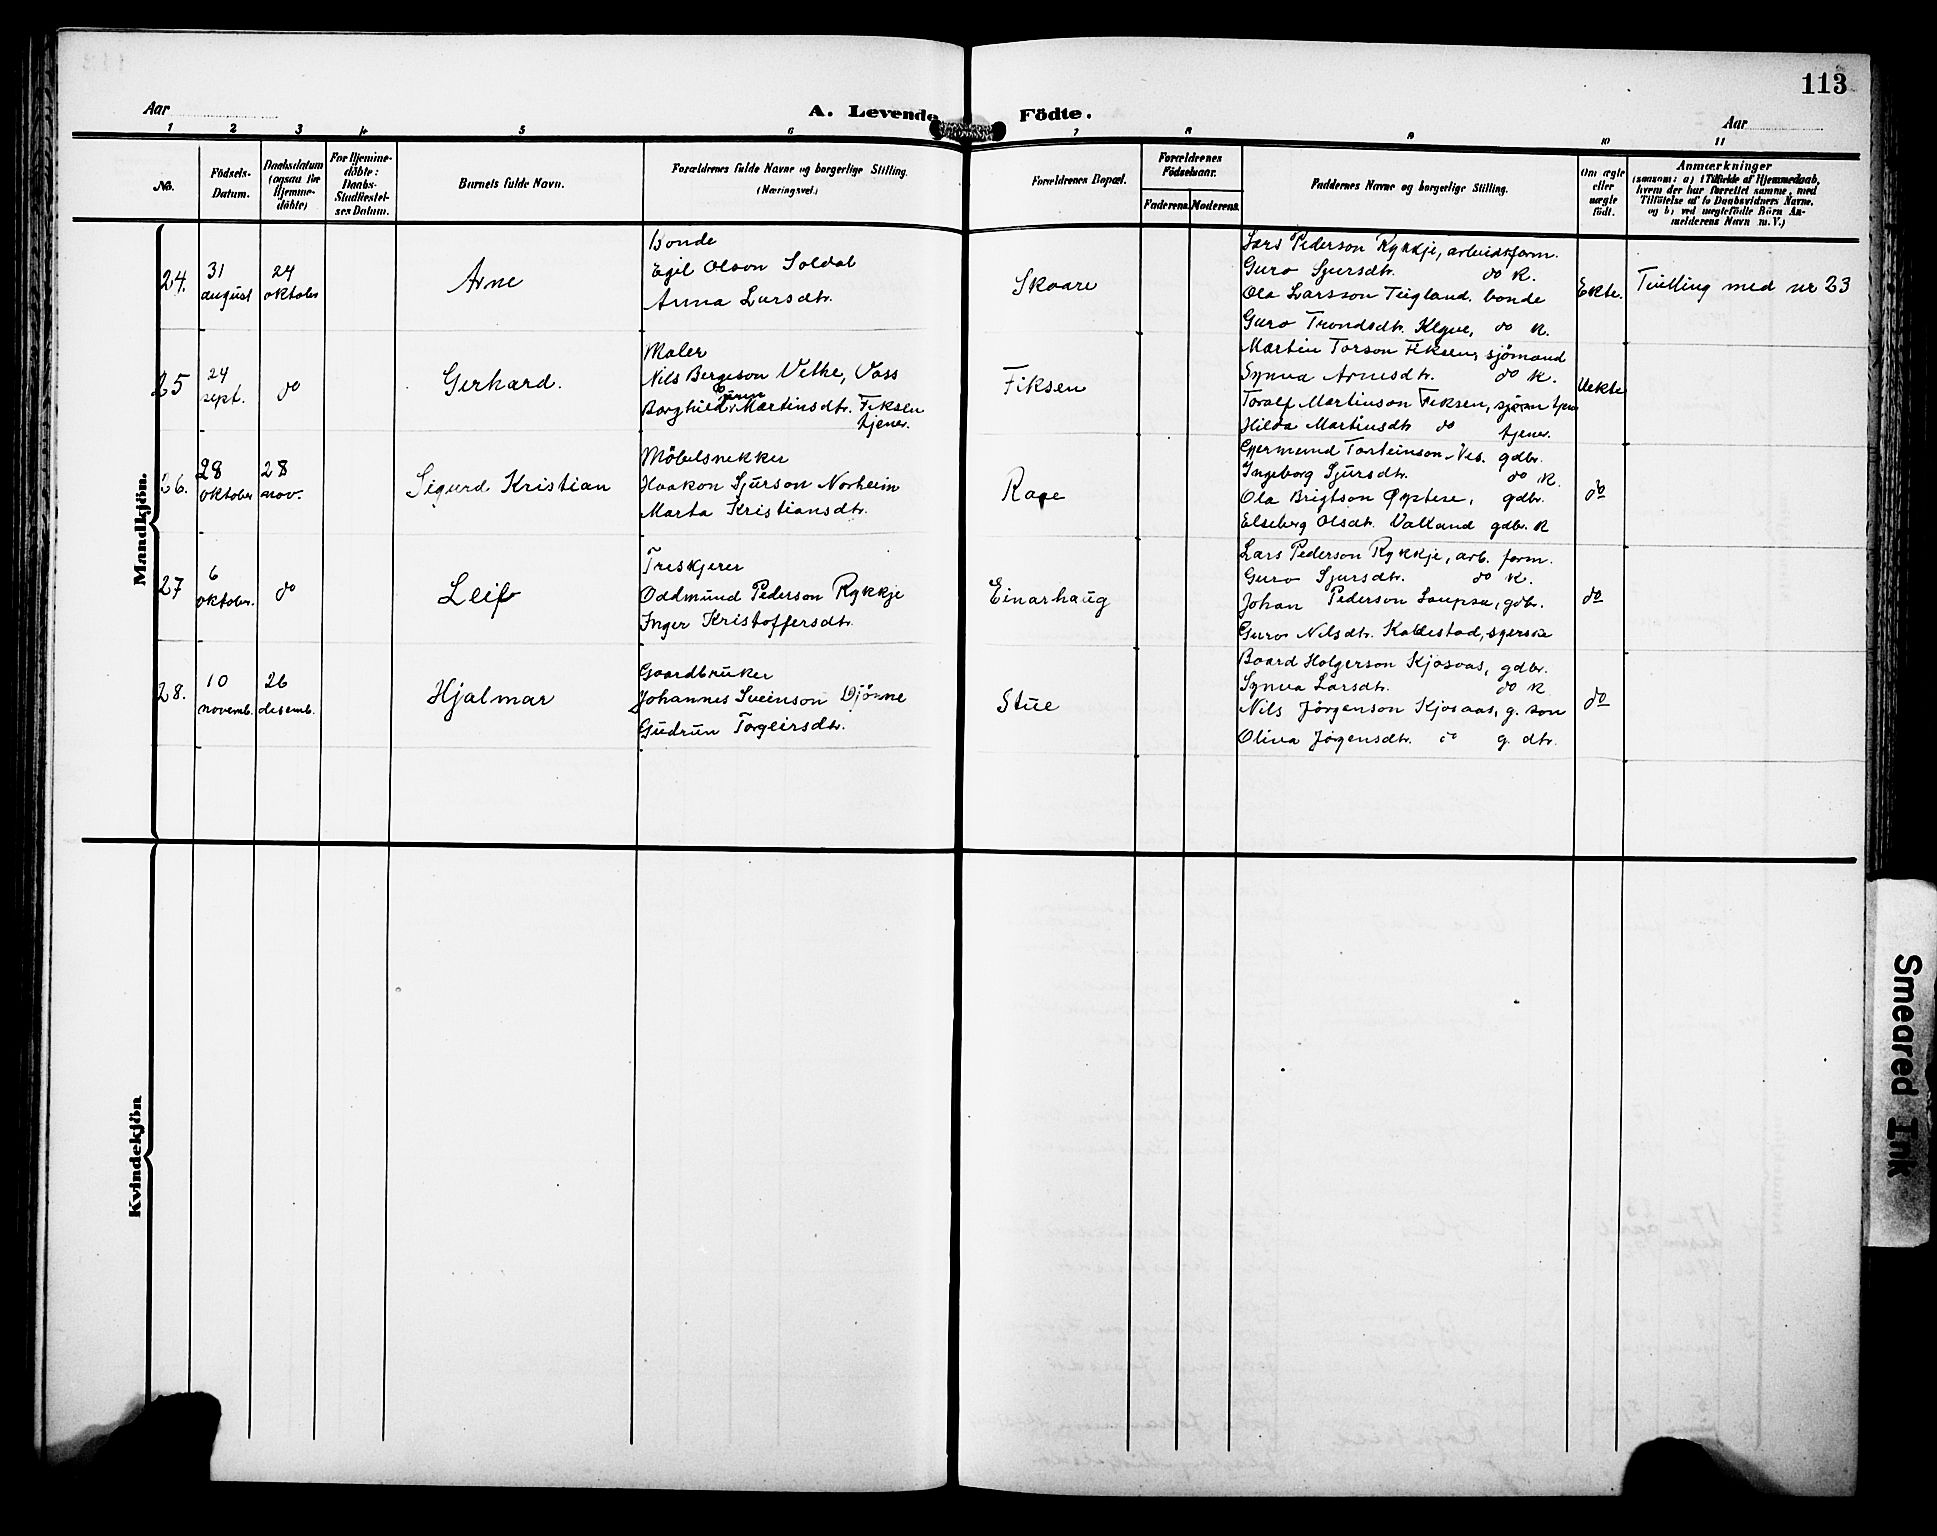 113
Aar
A. Levende Födte.
Aar
1 2 3 4 5 6 7 8 9 10 11
No.
Födsels-Datum.
Daabsdatum (ogsaa for Hjemme-döbte)
For Hjemme-döbte: Daabs-Stadfestel-ses Datum.
Barnets fulde Navn.
Forældrenes fulde Navne og borgerlige Stilling. (Næringsvei.)
Forældrenes Bopæl.
Forældrenes Födselsaar.
Faderens. Moderens.
Faddernes Navne og borgerlige Stilling.
Om ægte eller uægte födt.
Anmærkninger
(saasom: a) i Tilfælde af Hjemmedaab,
hvem der har forrettet samme, med
Tilföielse af to Daabsvidners Navne,
og b) ved uægtefödte Börn An-
melderens Navn m. V.)
Mandkjön.
24.
31 august
24 oktober
Arne
Bonde
Egil Olson Soldal
Anna Larsdtr.
Skaare
Lars Pederson Rykkje, arbeidsform.
Guro Sjursdtr. do k.
Ola Larsson Teigland, bonde
Guro Trondsdtr. Klyve, do k.
Ekte.
Tvilling med nr 23
25
24 sept.
do
Gerhard.
Maler
Nils Bergeson Vethe, Voss
Borghild Martinsdtr. Fiksen
tjener.
Fiksen
Martin Torson Fiksen, sjömand
Synva Arnesdtr. do k.
Toralf Martinson Fiksen,
Hilda Martinsdtr do tjener.
Uekte
26.
28 oktober
28 nov.
Sigurd Kristian
Möbelsnekker
Haakon Sjurson Norheim
Marta Kristiansdtr.
Gjermund Torsteinson Nes. gdbr.
Ingeborg Sjursdtr. do k.
Ola Brigtson Öystese, gdbr.
Elseberg Olsdtr. Valland gdbr. k
do
27
6 oktober.
do
Leif
Treskjerer
Oddmund Pederson Rykkje
Inger Kristoffersdtr.
Einarhaug
Lars Pederson Rykkje, arb. form.
Guro Sjursdtr. do k.
Johan Pederson Laupsa, gdbr.
Guro Nilsdtr. Kaldestad, syerske
do
28.
10 novemb.
26 desemb.
Hjalmar
Gaardbruker
Johannes Sveinson Djönne
Gudrun Torgeirsdtr.
Stue
Baard Holgerson Kjosaas, gdbr.
Synva Larsdtr. do k
Nils Jörgenson Kjosaas, g. son
Oliva Jörgensdtr. do g. dtr.
do
Kvindekjön
Smeared Ink